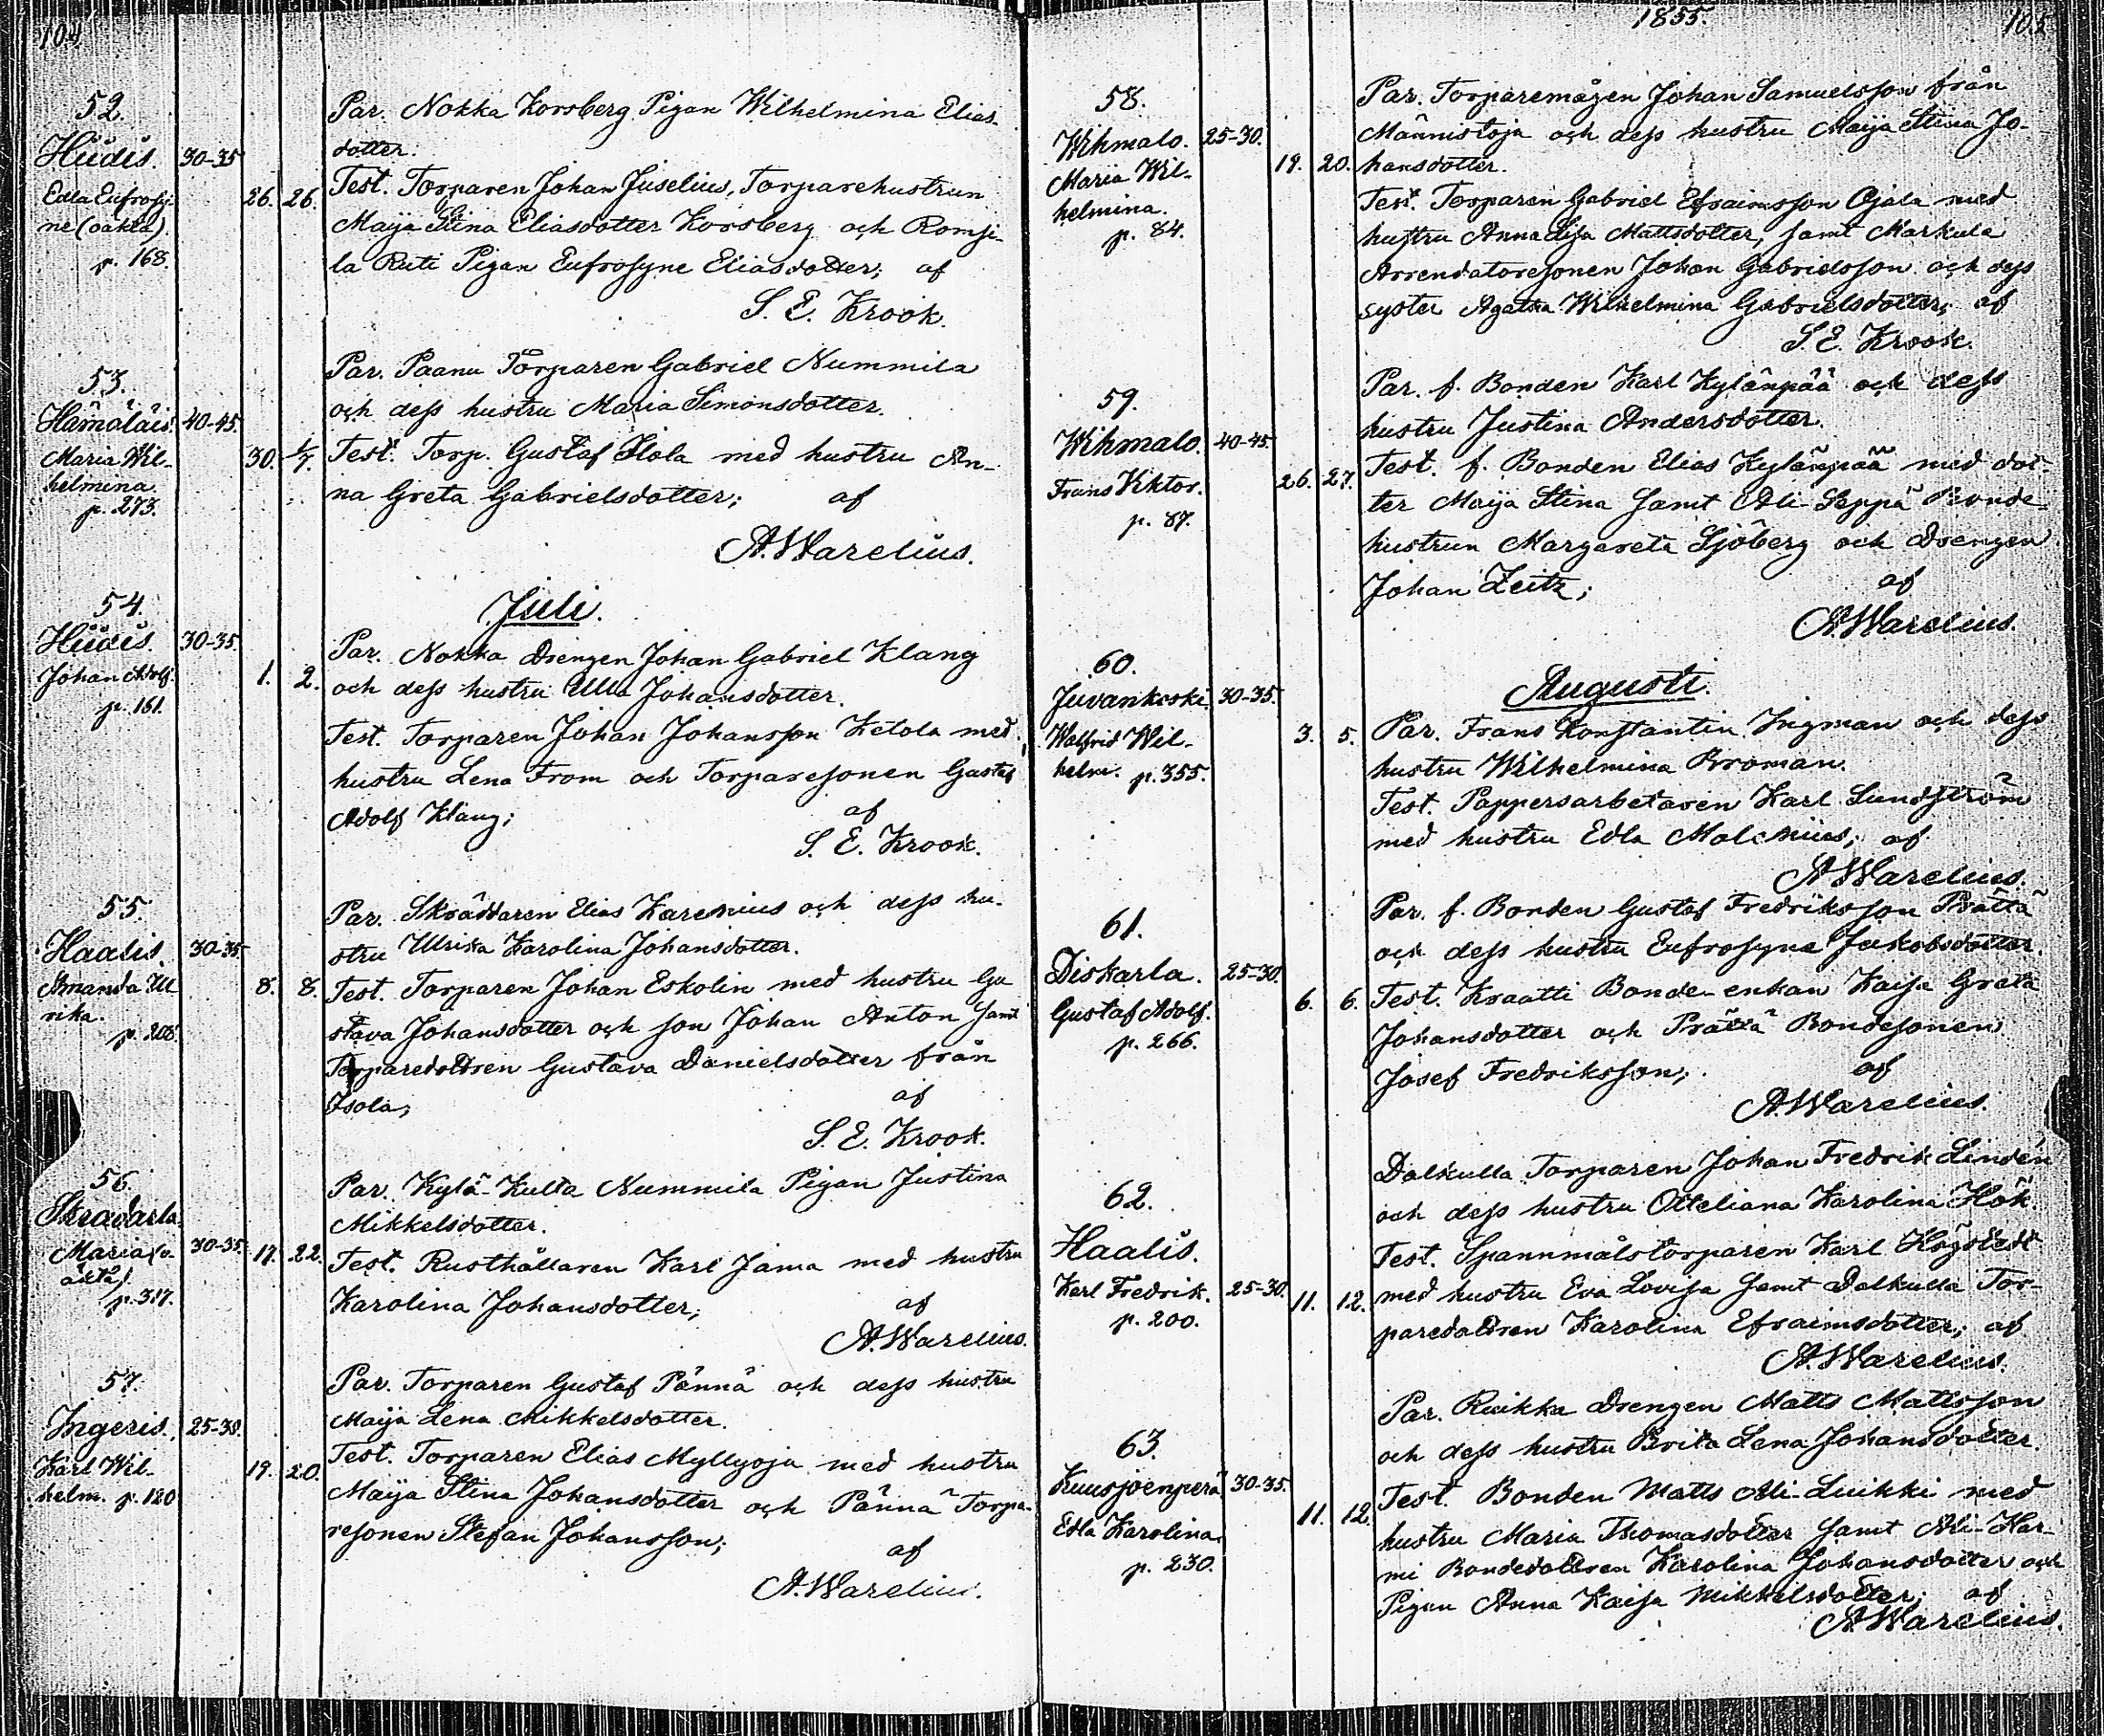 104
52.
Hüdis. 30-35
Edla Eufrosy-
ne (oäkta)
p. 168.
26. 26.
Par. Nokka Korsberg Pigan Wilhelmina Elias-
dotter.
Test. Torparen Johan Juselius, Torparehustrun
Maija Stina Eliasdotter Korsberg och Romsi-
la Ruti Pigan Eufrosyne Eliasdotter; af
S. E. Krook.
53.
Hämäläis. 40-45.
Maria Wil-
helmina.
p. 273.
30. 1/7.
Par. Paanu Torparen Gabriel Nummila
och dess hustru Maria Simonsdotter.
Test. Torp. Gustaf Isola med hustru An-
na Greta Gabrielsdotter; af
A. Warelius.
Juli.
54.
Hüdis. 30-35
Johan Adolf.
p. 161.
1. 2.
Par. Nokka Drengen Johan Gabriel Klang
och dess hustru Ulla Johansdotter.
Test. Torparen Johan Johansson Ketola med
hustru Lena From och Torparesonen Gustaf
Adolf Klang; af
S. E. Krook.
55.
Haalis. 30-35
Amanda Ul
rika.
p. 208.
8. 8.
Par. Skräddaren Elias Karenius och dess hu-
stru Ulrika Karolina Johansdotter.
Test. Torparen Johan Eskolin med hustru Gu
stava Johansdotter och son Johan Anton samt
Torparedottren Gustava Danielsdotter från
Isola; af
S. E. Krook.
56.
Skradarla
Maria (o-
äkta).
p. 317.
30-35. 17. 22.
Par. Kylä-Kulta Nummila Pigan Justina
Mikkelsdotter.
Test. Rusthållaren Karl Jama med hustru
Karolina Johansdotter; af
A. Warelius.
57.
Ingeris. 25-30.
Karl Wil-
helm. p. 120
19. 20.
Par. Torparen Gustaf Pännä och dess hustru
Maija Lena Mikkelsdotter.
Test. Torparen Elias Myllyoja med hustru
Maija Stina Johansdotter och Pännä Torpa-
resonen Stefan Johansson; af
A. Warelius.
1855. 105
58.
Wihmalo. 25-30.
Maria Wil-
helmina.
p. 84.
19. 20.
Par. Torparemågen Johan Samuelsson från
Männistoja och dess hustru Maija Stina Jo-
hansdotter.
Test. Torparen Gabriel Efraimsson Ojala med
hustru Anna Lisa Mattsdotter, samt Markula
Arrendatoresonen Johan Gabrielsson och dess
syster Agatha Wilhelmina Gabrielsdotter; af
S. E. Krook.
59.
Wihmalo. 40-45
Frans Viktor.
p. 87.
26. 27.
Par. f. Bonden Karl Kylänpää och dess
hustru Justina Andersdotter.
Test. f. Bonden Elias Kylänpää med dot-
ter Maija Stina samt Ali-Seppä Bonde-
hustrun Margareta Sjöberg och Drengen
Johan Zeitz; af
A. Warelius.
Augusti.
60.
Juvankoski. 30-35.
Walfrid Wil-
helm. p. 355.
3. 5.
Par. Frans Konstantin Ingman och dess
hustru Wilhelmina Broman.
Test. Pappersarbetaren Karl Sundström
med hustru Edla Malenius; af
A. Warelius.
61.
Diskarla. 25-30.
Gustaf Adolf.
p. 266.
6. 6.
Par. f. Bonden Gustaf Fredriksson Prättä
och dess hustru Eufrosyne Jakobsdotter.
Test. Kraatti Bonde-enkan Kaisa Greta
Johansdotter och Prättä Bondesonen
Josef Fredriksson; af
A. Warelius.
62.
Haalis.
Karl Fredrik. 25-30.
p. 200.
11. 12.
Dalkulla Torparen Johan Fredrik Lindén
och dess hustru Otteliana Karolina Hök.
Test. Spannmålstorparen Karl Högstedt
med hustru Eva Lovisa samt Dalkulla Tor-
paredottren Karolina Efraimsdotter; af
A. Warelius.
63.
Kuusjoenperä 30-35.
Edla Karolina.
p. 230.
11. 12.
Par. Ruikka Drengen Matts Mattsson
och dess hustru Brita Lena Johansdotter.
Test. Bonden Matts Ali-Luikki med
hustru Maria Thomasdotter samt Ali-Har-
mi Bondedottren Karolina Johansdotter och
Pigan Anna Kaisa Mikkelsdotter; af
A. Warelius.